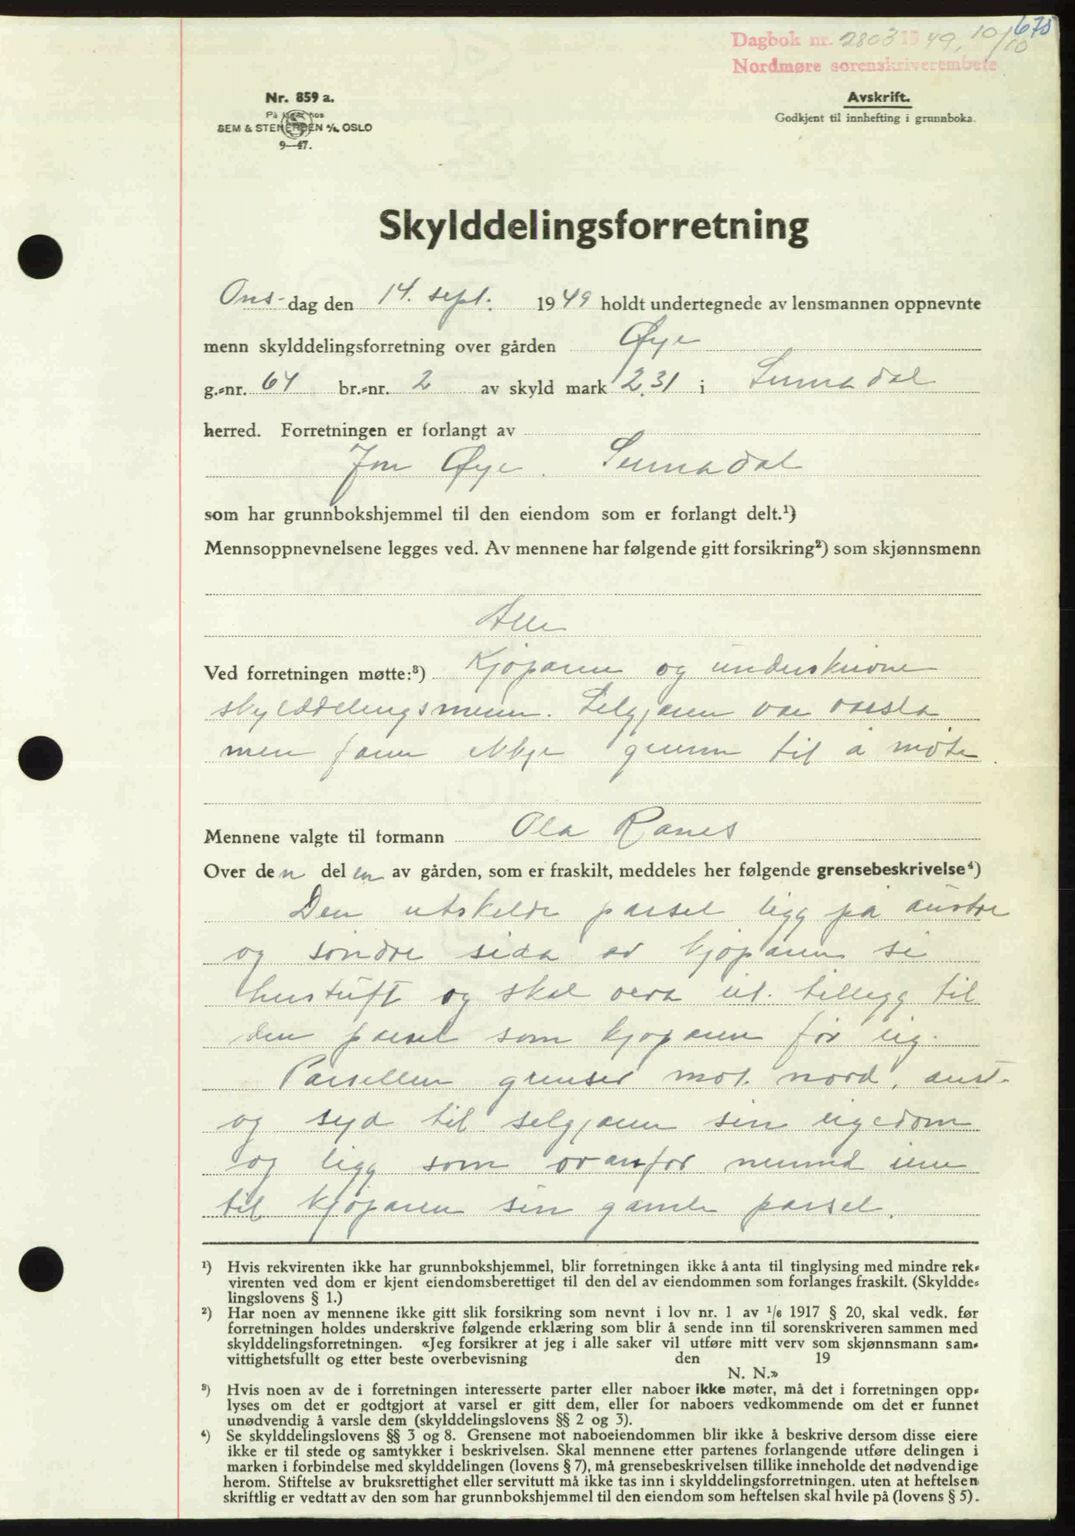 675
Dagbok nr. 2803 1949, 10/10
Nordmøre sorenskriverembete
Nr. 859 a.
På lager hos
SEM & STENERSEN A/S, OSLO
9—47.
Avskrift.
Godkjent til innhefting i grunnboka.
Skylddelingsforretning
Ons- dag den 14. sept. 1949 holdt undertegnede av lensmannen oppnevnte
menn skylddelingsforretning over gården Øye
g.-nr. 64 br.-nr. 2 av skyld mark 2,31 i Surnadal
herred. Forretningen er forlangt av
Jon Øye. Surnadal
som har grunnbokshjemmel til den eiendom som er forlangt delt.¹)
Mennsoppnevnelsene legges ved. Av mennene har følgende gitt forsikring²) som skjønnsmenn
Alle
Ved forretningen møtte:³) Kjøparen og underskrivne
skylddelingsmenn. Seljaren var varsla
men fann ikkje grunn til å møte.
Mennene valgte til formann Ola Ranes
Over den delen av gården, som er fraskilt, meddeles her følgende grensebeskrivelse⁴)
Den utskilde parsel ligg på austre
og søndre sida av kjøparen si
hustuft og skal vera eit tillegg til
den parsel som kjøparen før eig.
Parsellen grenser mot nord, aust-
og syd til selgjaren sin eigedom
og ligg som ovanfor nemnd inn
til kjøparen sin gamle parsel.
¹) Hvis rekvirenten ikke har grunnbokshjemmel, blir forretningen ikke å anta til tinglysing med mindre rek-
virenten ved dom er kjent eiendomsberettiget til den del av eiendommen som forlanges fraskilt. (Skyldde-
lingslovens § 1.)
²) Har noen av mennene ikke gitt slik forsikring som nevnt i lov nr. 1 av 1/6 1917 § 20, skal vedk. før
forretningen holdes underskrive følgende erklæring som blir å sende inn til sorenskriveren sammen med
skylddelingsforretningen. «Jeg forsikrer at jeg i alle saker vil utføre mitt verv som skjønnsmann sam-
vittighetsfullt og etter beste overbevisning den 19
N. N.»
³) Hvis noen av de i forretningen interesserte parter eller naboer ikke møter, må det i forretningen opp-
lyses om det er godtgjort at varsel er gitt dem, eller for naboers vedkommende om det er funnet
unødvendig å varsle dem (skylddelingslovens §§ 2 og 3).
⁴) Se skylddelingslovens §§ 3 og 8. Grensene mot naboeiendommen blir ikke å beskrive dersom disse eiere
ikke er til stede og samtykker i beskrivelsen. Skal mennene etter partenes forlangende utføre delingen i
marken i forbindelse med skylddelingen (lovens § 7), må grensebeskrivelsen tillike inneholde det nødvendige
herom. Stiftelse av bruksrettighet eller servitutt må ikke tas inn i skylddelingsforretningen, uten at heftelsen
skriftlig er vedtatt av den som har grunnbokshjemmel til den eiendom som heftelsen skal hvile på (lovens § 5).